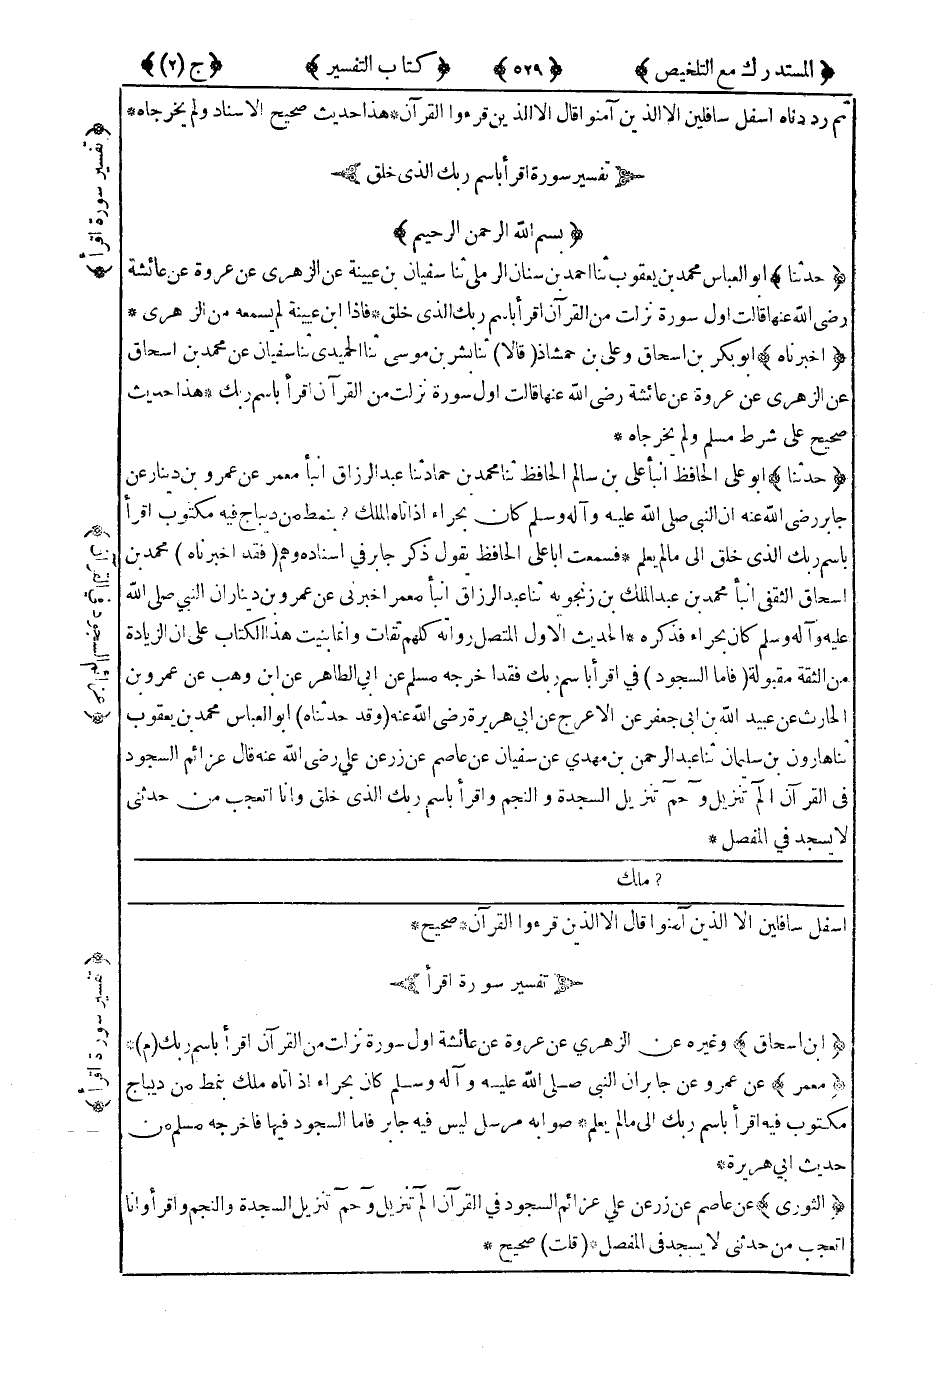 ﴿ المستدرك مع التلخيص ﴾ ﴿ ٥٢٩ ﴾ ﴿ كتاب التفسير ﴾ ﴿ ج (٢) ﴾
ثم رددناه اسفل سافلين الا الذين آمنوا قال الا الذين قرءوا القرآن * هذا حديث صحيح الاسناد ولم يخرجاه *
تفسير سورة اقرأ باسم ربك الذى خلق
﴿ بسم الله الرحمن الرحيم ﴾
﴿ حدثنا ﴾ ابو العباس محمد بن يعقوب ثنا احمد بن سنان الرملي ثنا سفيان بن عيينة عن الزهرى عن عروة عن عائشة
رضى الله عنها قالت اول سورة نزلت من القرآن اقرأ باسم ربك الذى خلق * فاذا ابن عيينة لم يسمعه من الزهرى *
﴿ اخبرناه ﴾ ابو بكر بن اسحاق وعلى بن حمشاذ ( قالا ) ثنا بشر بن موسى ثنا الحميدى ثنا سفيان عن محمد بن اسحاق
عن الزهرى عن عروة عن عائشة رضى الله عنها قالت اول سورة نزلت من القرآن اقرأ باسم ربك * هذا حديث
صحيح على شرط مسلم ولم يخرجاه *
﴿ حدثنا ﴾ ابو على الحافظ انبأ على بن سالم الحافظ ثنا محمد بن حماد ثنا عبد الرزاق انبأ معمر عن عمرو بن دينار عن
جابر رضى الله عنه ان النبي صلى الله عليه وآله وسلم كان بحراء اذ اتاه الملك ? بنمط من ديباج فيه مكتوب اقرأ
باسم ربك الذى خلق الى مالم يعلم * فسمعت ابا على الحافظ يقول ذكر جابر في اسناده وهم ( فقد اخبرناه ) محمد بن
اسحاق الثقفى انبأ محمد بن عبد الملك بن زنجويه ثنا عبد الرزاق انبأ معمر اخبرنى عن عمرو بن دينار ان النبي صلى الله
عليه وآله وسلم كان بحراء فذكره * الحديث الاول المتصل رواته كلهم ثقات وانما بنيت هذا الكتاب على ان الزيادة
من الثقة مقبولة ( فاما السجود ) في اقرأ باسم ربك فقد اخرجه مسلم عن ابي الطاهر عن ابن وهب عن عمرو بن
الحارث عن عبيد الله بن ابى جعفر عن الاعرج عن ابي هريرة رضى الله عنه ( وقد حدثناه ) ابو العباس محمد بن يعقوب
ثنا هارون بن سليمان ثنا عبد الرحمن بن مهدي عن سفيان عن عاصم عن زر عن علي رضى الله عنه قال عزائم السجود
فى القرآن الٓمٓ تنزيل وحٓمٓ تنزيل السجدة و النجم واقرأ باسم ربك الذى خلق وانا اتعجب من حدثنى
لا يسجد في المفصل *
? ملك
اسفل سافلين الا الذين آمنوا قال الا الذين قرءوا القرآن * صحيح *
تفسير سورة اقرأ
﴿ ابن اسحاق ﴾ وغيره عن الزهري عن عروة عن عائشة اول سورة نزلت من القرآن اقرأ باسم ربك (م) *
﴿ معمر ﴾ عن عمرو عن جابر ان النبي صلى الله عليه و آله وسلم كان بحراء اذ اتاه ملك بنمط من ديباج
مكتوب فيه اقرأ باسم ربك الى مالم يعلم * صوابه مرسل ليس فيه جابر فاما السجود فيها فاخرجه مسلم من
حديث ابي هريرة *
﴿ الثورى ﴾ عن عاصم عن زر عن علي عزائم السجود في القرآن الٓمٓ تنزيل وحٓمٓ تنزيل السجدة والنجم واقرأ وانا
اتعجب من حدثنى لا يسجد فى المفصل * ( قلت ) صحيح *
﴿ تفسير سورة اقرأ ﴾
﴿ عزائم السجود في القرآن ﴾
﴿ تفسير سورة اقرأ ﴾